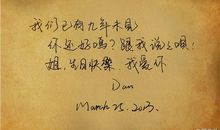 我们已有九年未見
你还好嗎？跟我说说唄！
姐，生日快樂，我爱你
Dan
March 25. 2013.